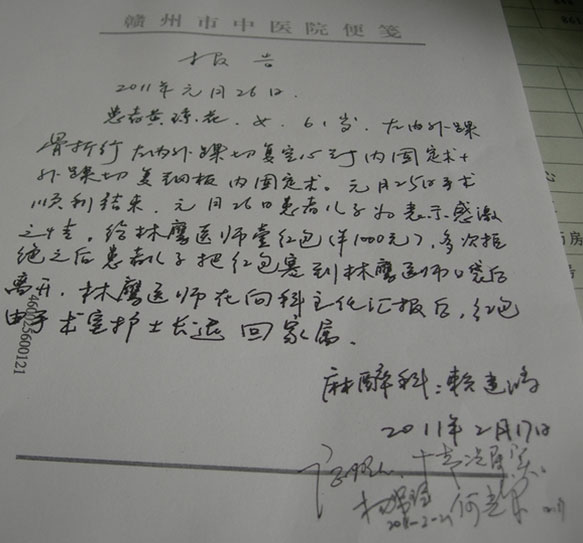 赣州市中医院便笺
报告
2011年元月26日.
患者黄琼花.女.61岁.左内外踝
骨折行左内外踝切复空心钉内固定术+
外踝切复钢板内固定术。元月25日手术
顺利结束.元月26日患者儿子为表示感激
之情,给林鹰医师壹红包(¥1000元),多次拒
绝之后患者儿子把红包塞到林鹰医师口袋后
离开.林鹰医师在向科主任汇报后,红包
由手术室护士长退回家属.
460023600121
麻醉科:赖建鸿
2011年2月17日
2011-2-21